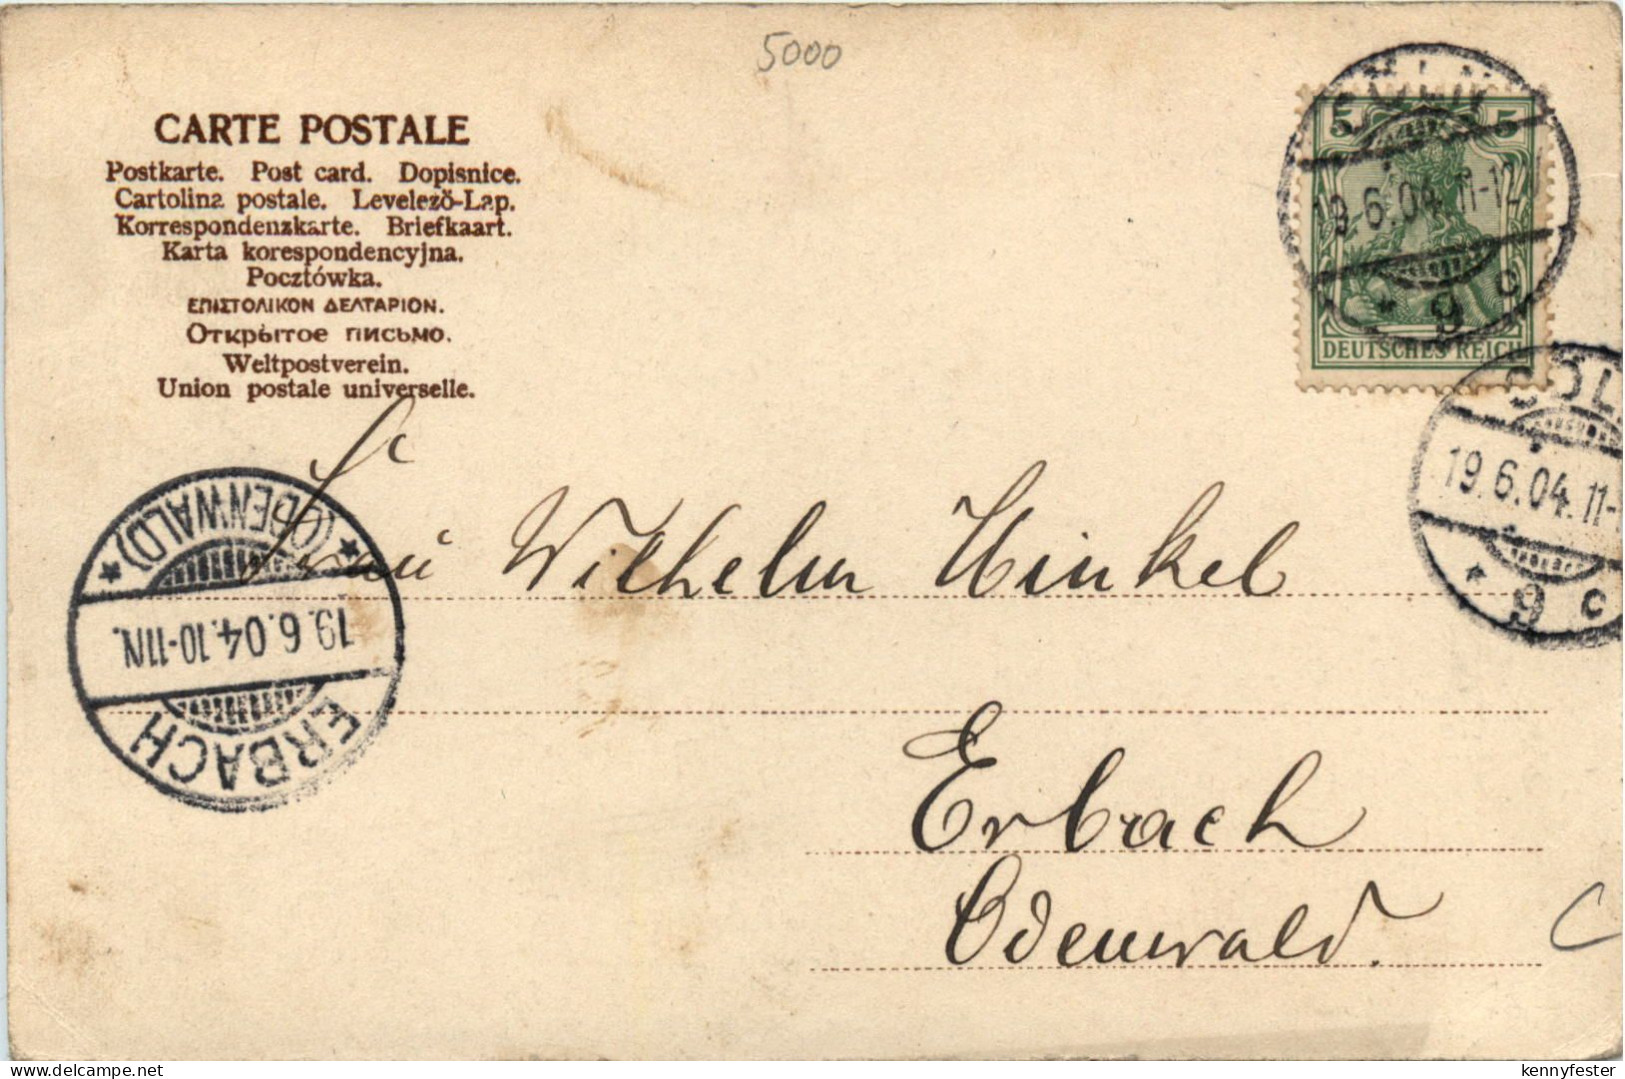 5000
CARTE POSTALE
Postkarte. Post card. Dopisnice.
Cartolina postale. Levelező-Lap.
Korrespondenzkarte. Briefkaart.
Karta korespondencyjna.
Pocztówka.
ΕΠΙΣΤΟΛΙΚΟΝ ΔΕΛΤΑΡΙΟΝ.
Открытое письмо.
Weltpostverein.
Union postale universelle.
5 5
DEUTSCHES REICH
CÖLN
19.6.04.11-12
* 9 c
CÖL
19.6.04.11-
* 9 c
ERBACH
19.6.04.10-11N.
* (ODENWALD) *
Frau Wilhelm Hinkel
Erbach
Odenwald.
kennyfester